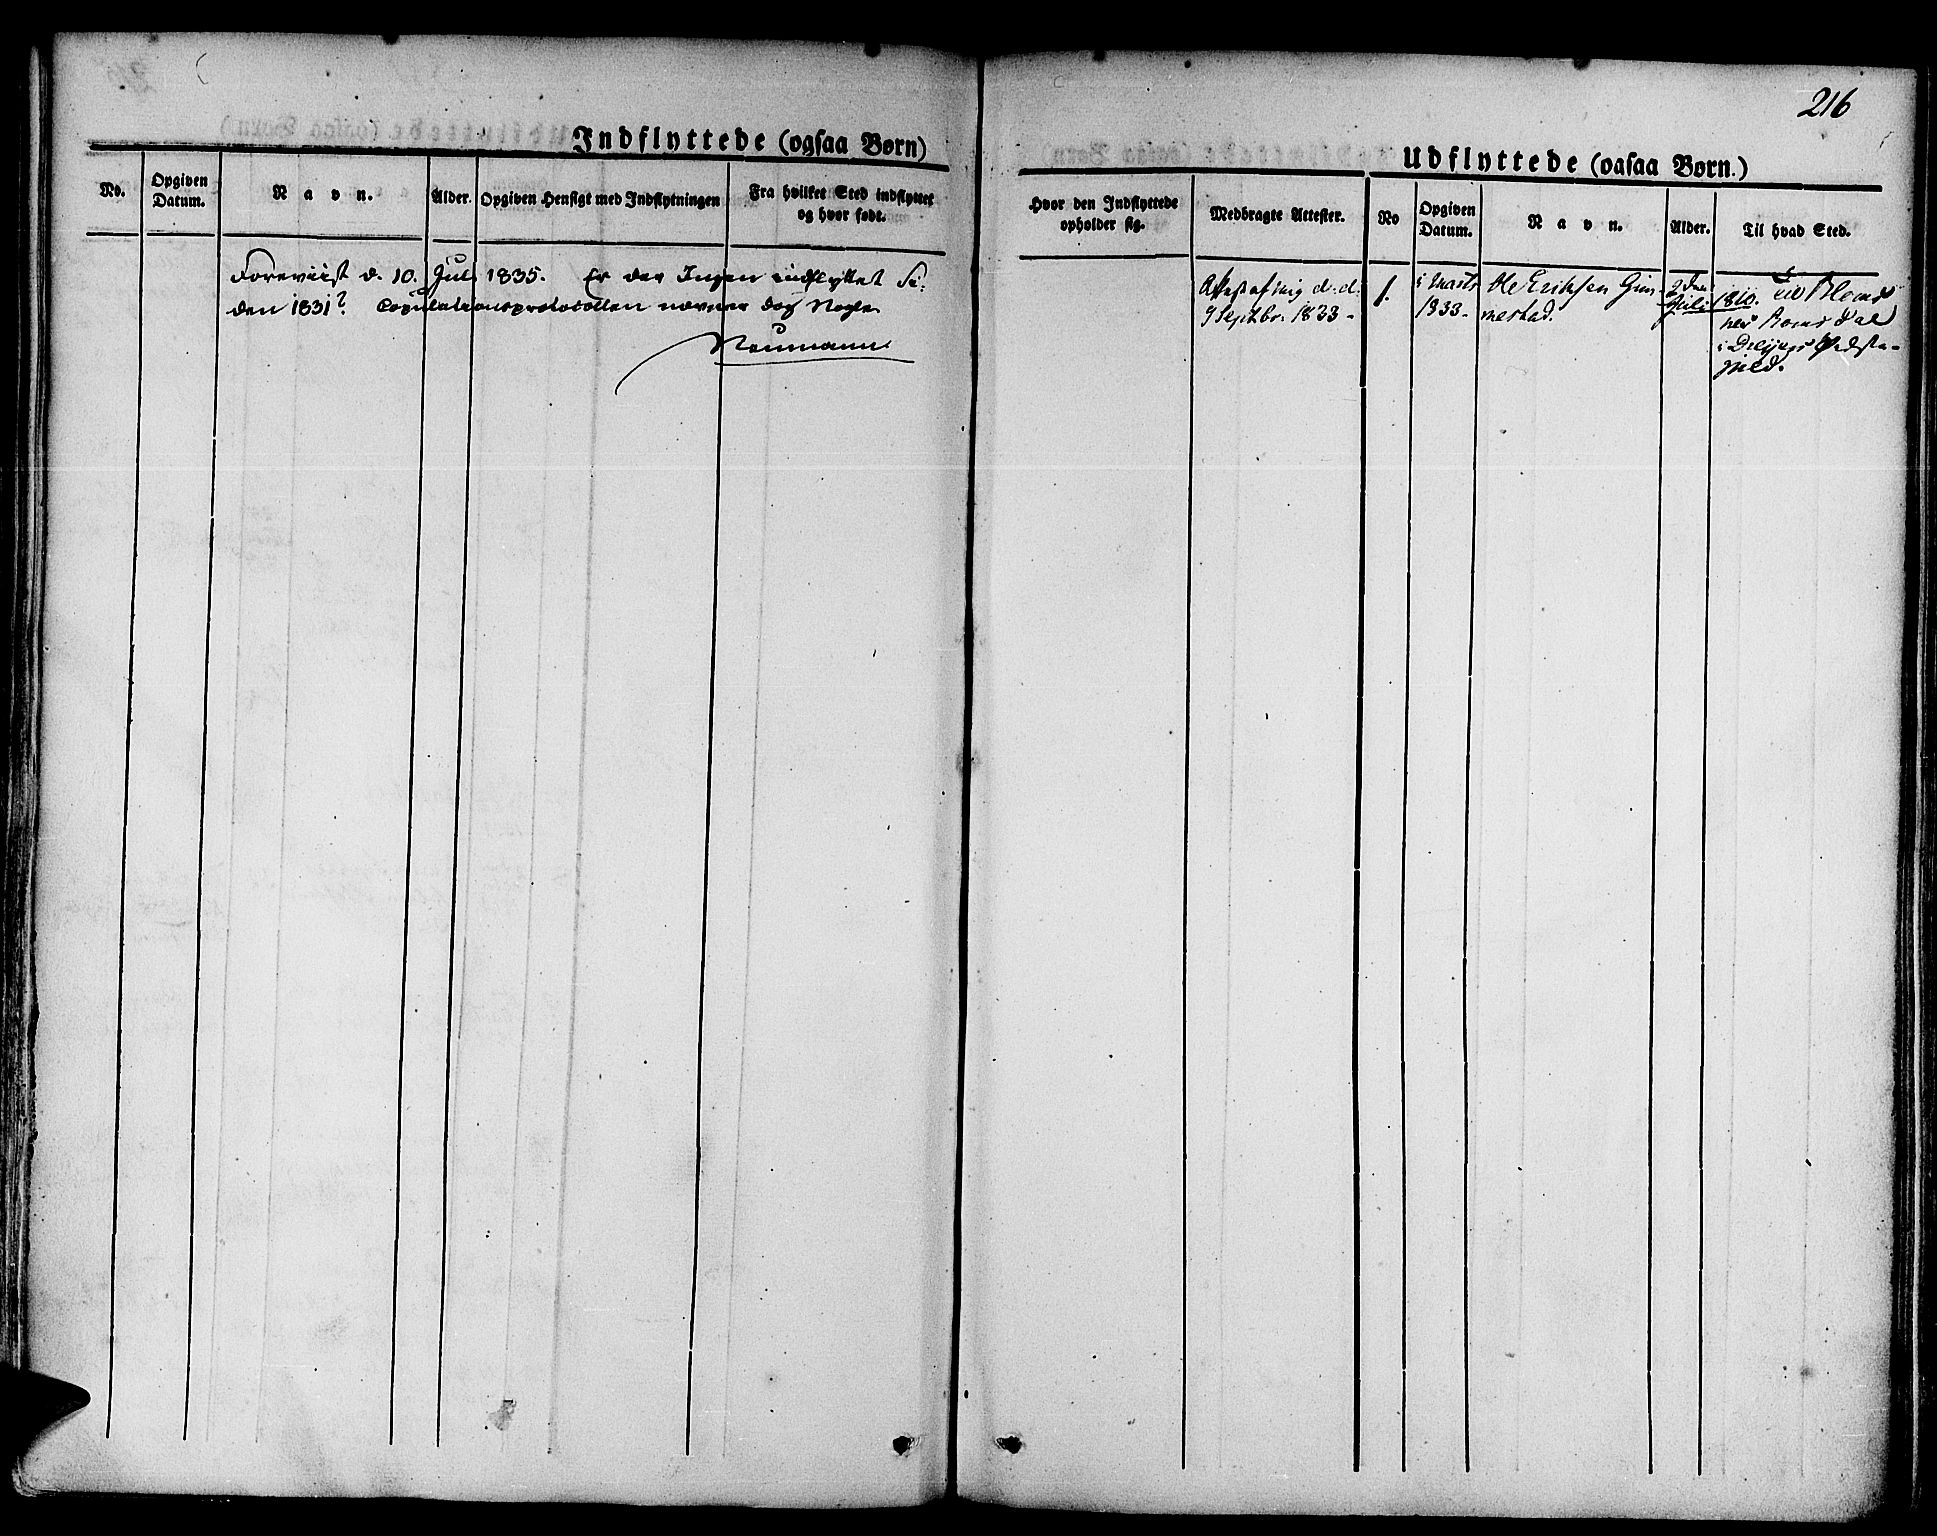 216
Indflyttede (ogsaa Børn)
No.
Opgiven Datum.
Navn.
Alder.
Opgiven Hensigt med Indflytningen
Fra hvilket Sted indflyttet og hvor født.
Foreviist d. 10. Juli 1835. Er der Ingen indflyttet Si-
den 1831? Copulationsprotocollen nævner dog Nogle.
Neumann
Udflyttede (ogsaa Børn.)
Hvor den Indflyttede opholder sig.
Medbragte Attester.
No
Opgiven Datum.
Navn.
Alder.
Til hvad Sted.
Attest af mig d. d.
9 Septbr. 1833.
1.
i Marts
1833.
Ole Eriksen Gim-
mestad.
Juli 1810.
ved Romsdal
i
gield.